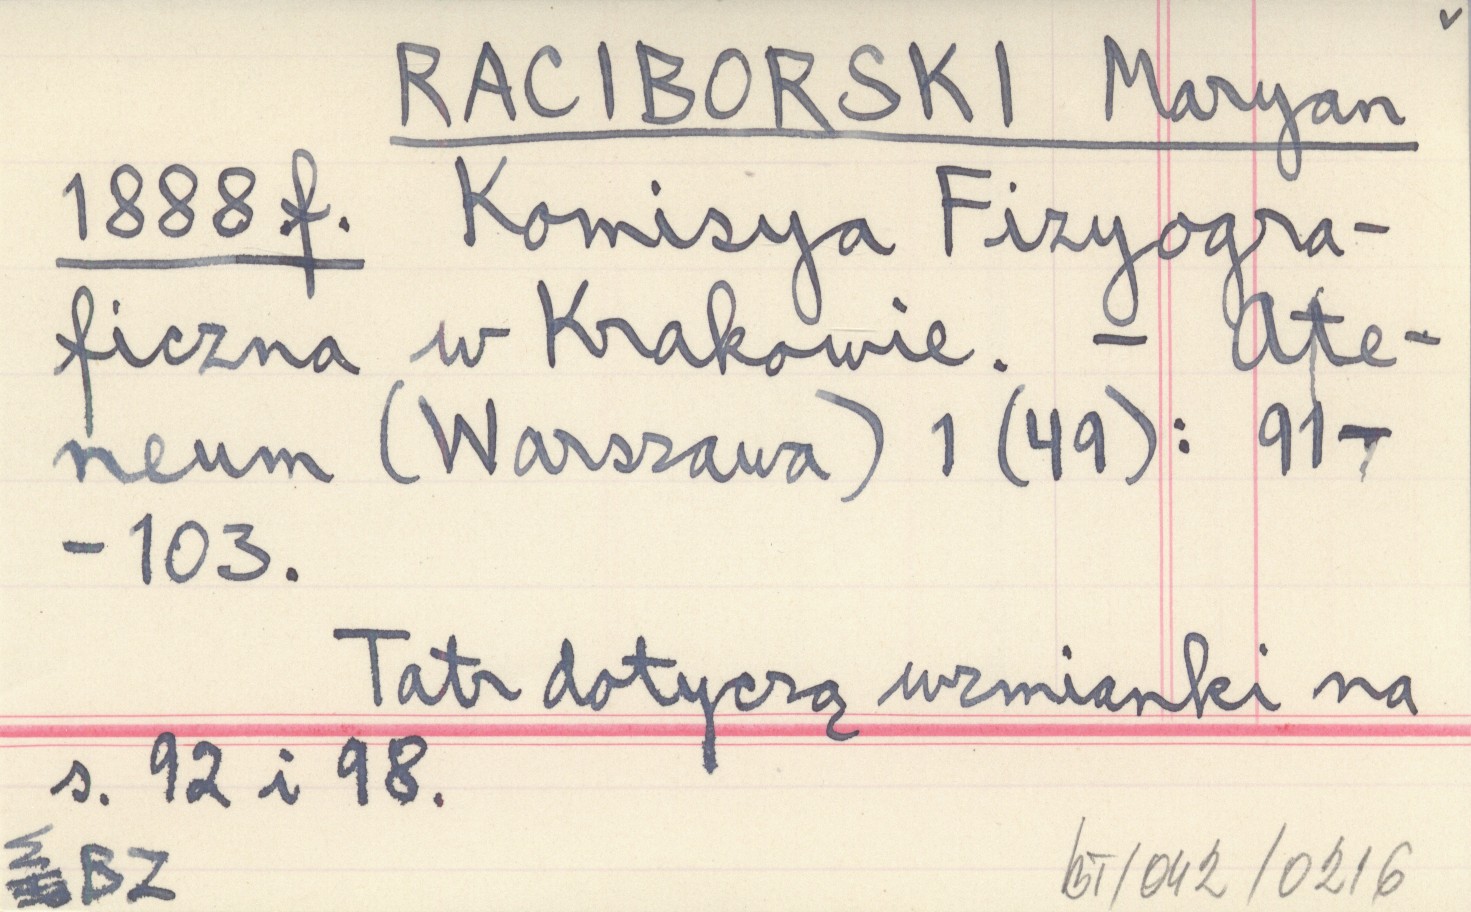 RACIBORSKI Maryan
1888 f. Komisya Fizyogra-
ficzna w Krakowie. - Ate-
neum (Warszawa) 1 (49): 91-
-103.
Tatr dotyczą wzmianki na
s. 92 i 98.
BZ
BT/042/0216